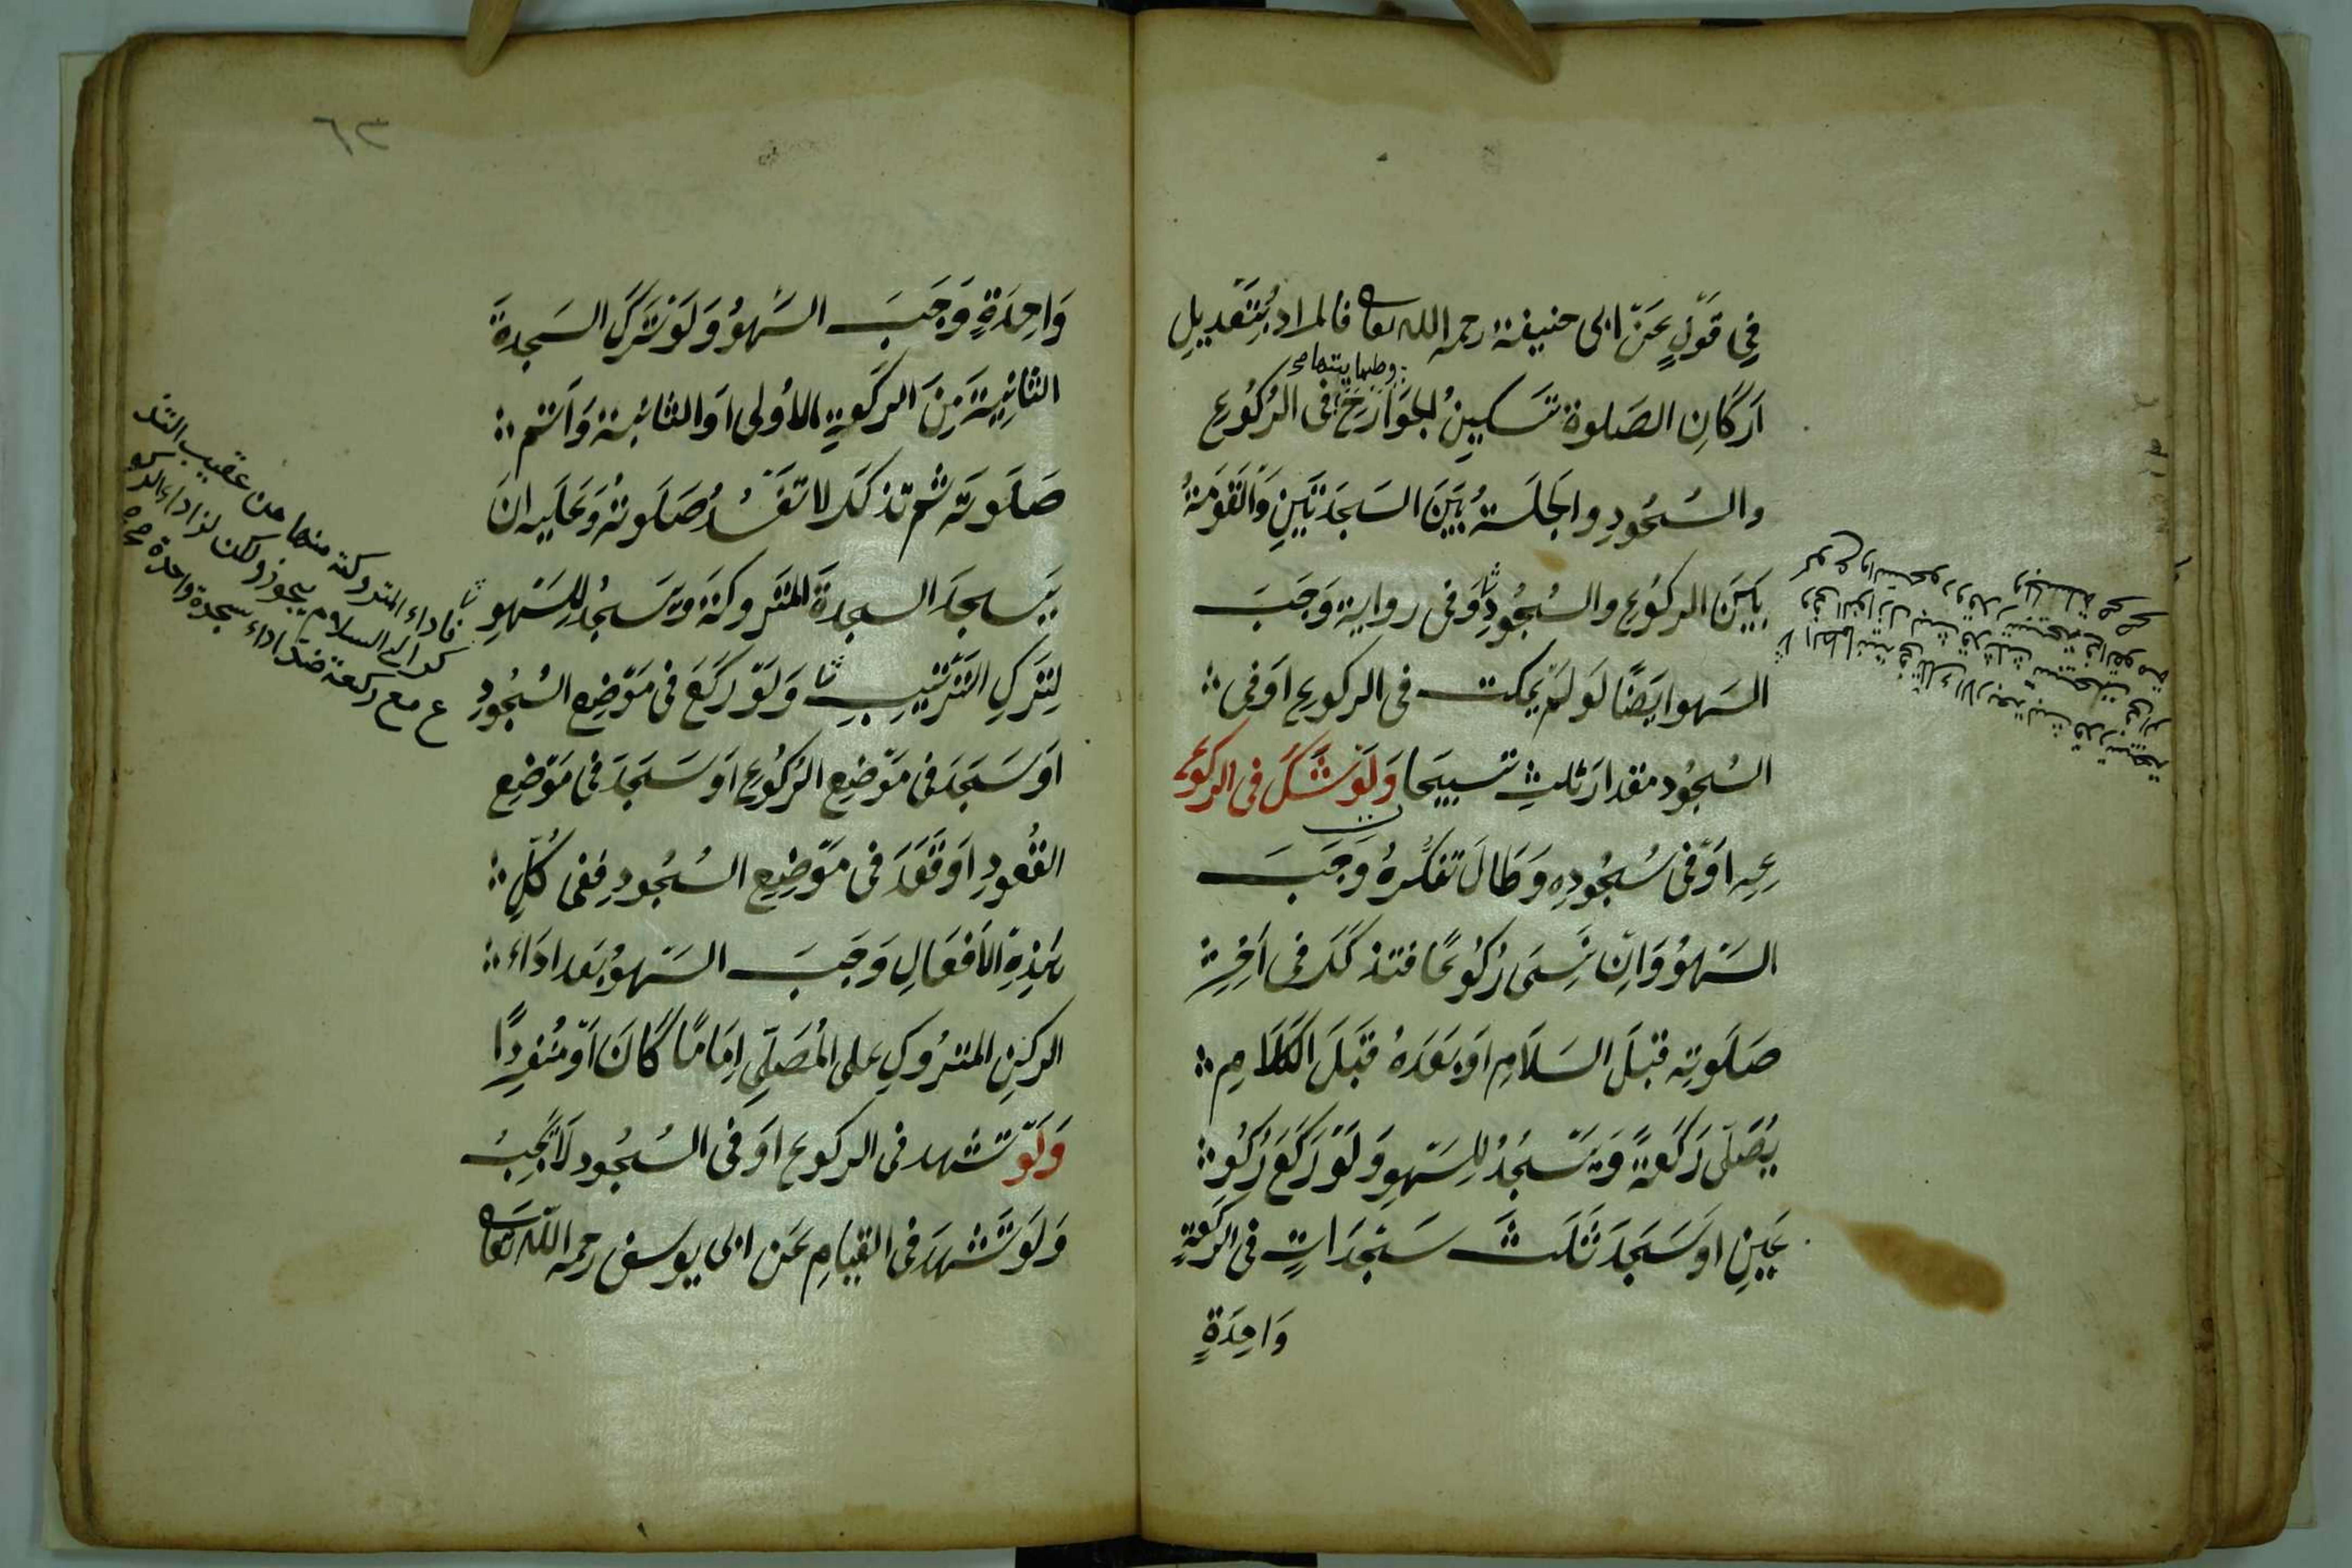 فِي قَوْلٍ عَنْ ابى حنيفة رحمه الله تعا فالمراد بِتَعْدِيلِ
وطمانيتها
اَرْكَانِ الصَلوة تَسكينُ الجَوَارِحِ فى الرُكُوعِ
والسُجُودِ والجَلسَةُ بَيْنَ السَجدَتَيْنِ وَالقَوْمَةُ
بَيْنَ الركوُعِ والسُجُودِ وَفى رواية وَجَبَ
السَهو ايَضًا لَو لَمْ يمكث فى الركوعِ اَوْ فى
السُجُود مقدارَ ثلثِ تسبيحا وَلَوْ شَكَّ فى الركو
عِهِ اَوْ فى سُجُودِهِ وَطَالَ تفكرهُ وَجَبَ
السَهوُ وَاِنْ نَسِىَ رُكُوعًا فتذكَّرَ فى اَخِرِ
صَلَوتِه قبْلَ السَلَامِ اَوْ بَعْدَهُ قَبْلَ الكَلَامِ
يُصَلّى رَكعَةً وَيَسْجُدُ لِلسَهوِ وَلَوْ رَكَعَ رُكُو
عَيْنِ اَوْ سَجَدَ ثَلثَ سَجَدَاتٍ فى الركعَةٍ
وَاحِدَةٍ
٦٣
وَاحِدَةٍ وَجَبَ السَهوُ وَلَوْ تَرَكَ السَجدةَ
الثانِيَةَ مِنَ الركعةِ الاُولى اَو الثانية وَاَتم
صَلَوتَه ثم تذكَّرَ لا تَفْسُدُ صَلَوتهُ وَعَلَيه اَنْ
يَسجدَ السجدةَ المَتْروكَةَ وَيَسْجُدُ لِلسَهوِ
لِتَرْكِ التَرْتيبِ وَلَوْ رَكَعَ فى مَوْضِع السُجُودِ
اَوْ سَجَدَ فى مَوْضِعِ الرُكُوعِ اَوْ سَجَدَ فى مَوْضِعِ
القُعُودِ اَوْ قَعَدَ فى مَوْضِعِ السُجُودِ فَفى كُلِّ
هَذِهِ الاَفعَالِ وَجَبَ السَهوُ بَعْد اَدَاءِ
الركنِ المتْرُوكِ على المُصَلِّى اِمَامًا كَانَ اَوْ مُنْفرِدًا
وَلَوْ تشهد فى الركوع اَوْ فى السُجُود لَا يَجِبُ
وَلَوْ تَشَهَدَ فى القيَامِ عَن ابى يوسف رحمه الله تعا
فاداء المتروكة منها من عقيب التذ
كر الى السلام يجوز ولكن لزا داء الركو
ع مع ركعة ضدّ اداء سجدة واحدة